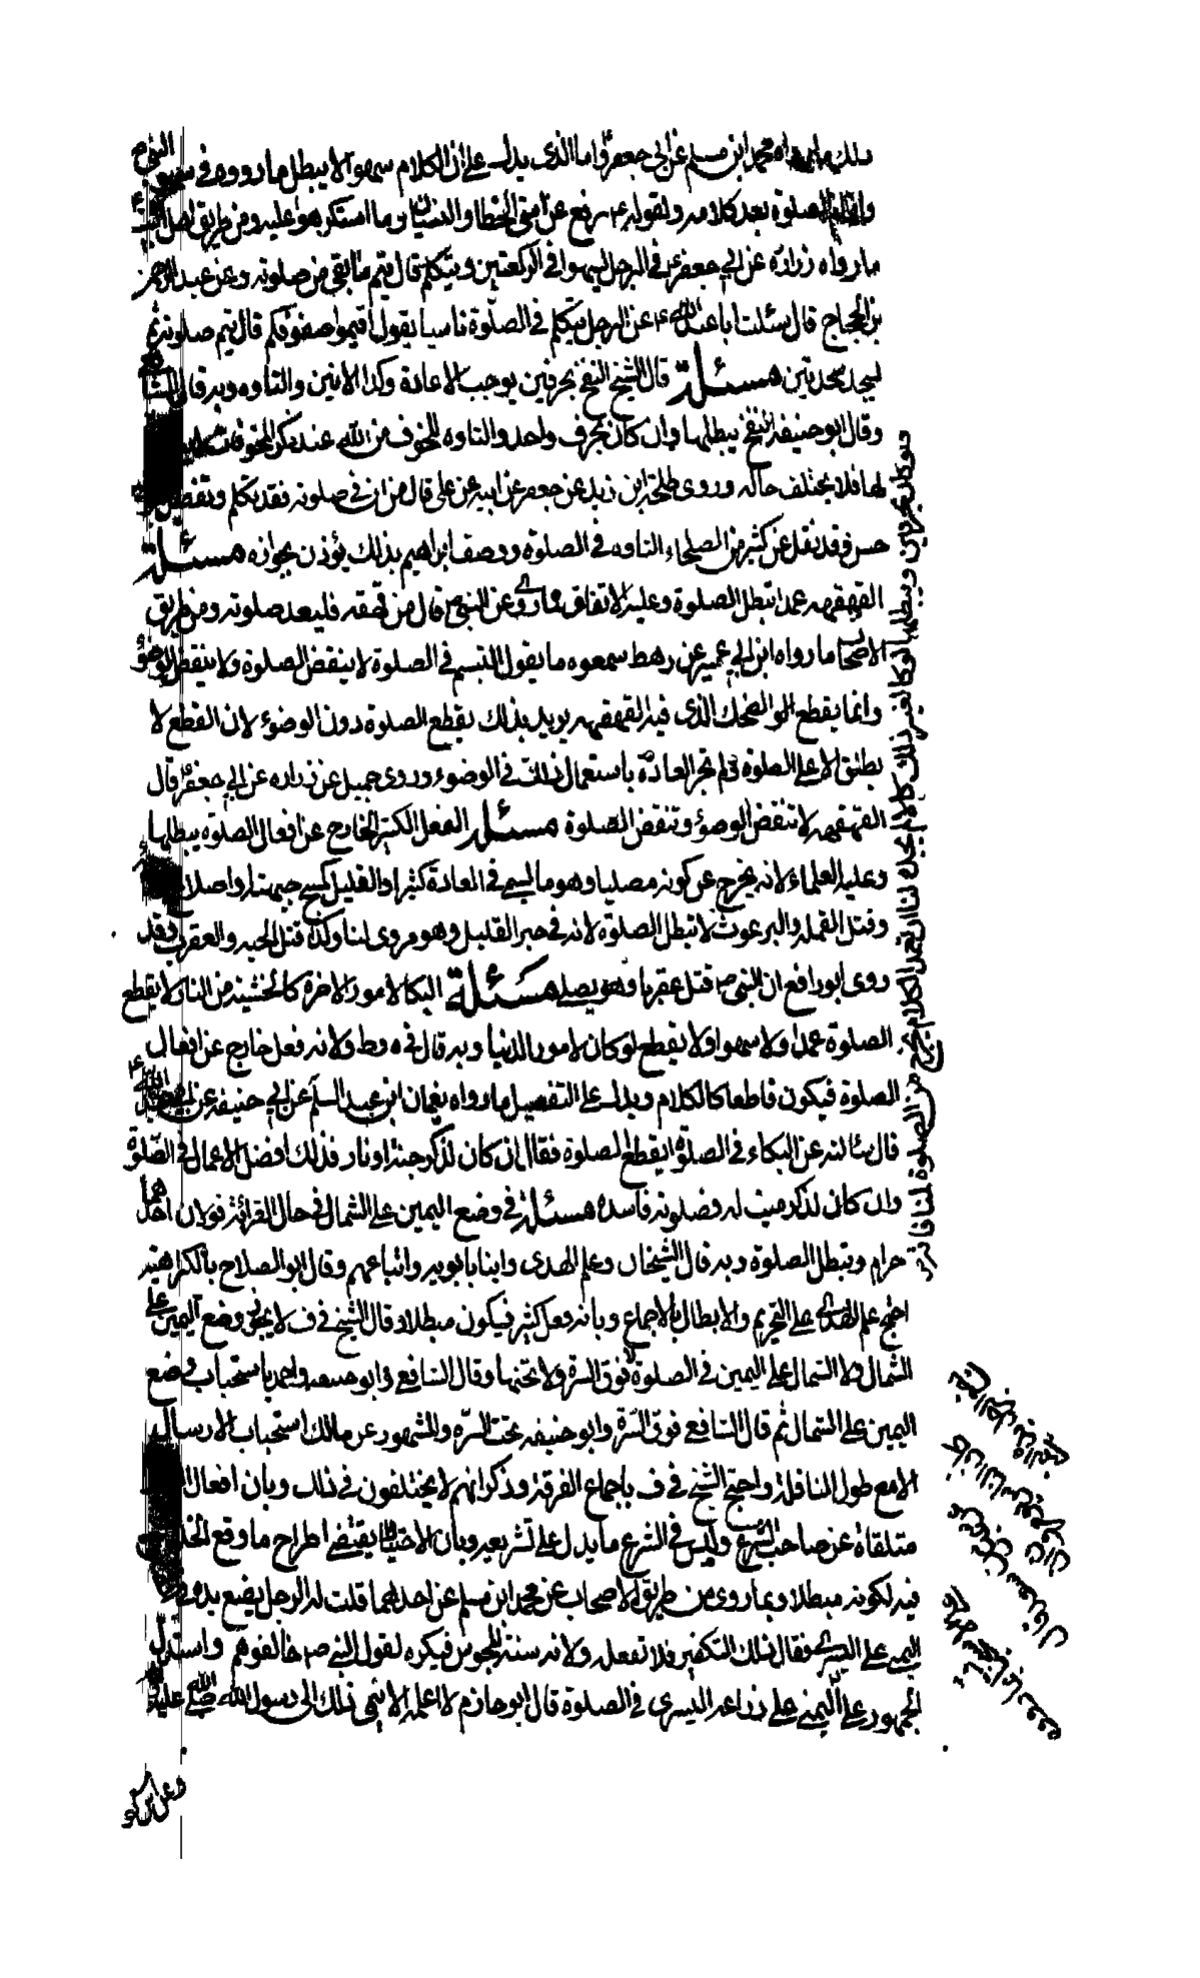 ذلك ما رواه محمد ابن مسلم عن ابي جعفر ع واما الذي يدل على ان الكلام سهوا لا يبطل ما رووه في سهو النبي ص
واتمام الصلوة بعد كلامه ولقوله ع رفع عن امتي الخطا والنسيان وما استكرهوا عليه ومن طريق اهل البيت ع
ما رواه زراره عن ابي جعفر ع في الرجل يسهوا في الركعتين ويتكلم قال يتم ما بقي من صلوته وعن عبد الرحمن
بن الحجاج قال سئلت ابا عبد الله ع عن الرجل يتكلم في الصلوة ناسيا يقول اقيموا صفوفكم قال يتم صلوته ثم
يسجد سجدتين مسئلة قال الشيخ النفخ بحرفين يوجب الاعادة وكذا الانين والتاوه وبه قال الشافعي
وقال ابو حنيفه النفخ يبطلها وان كان بحرف واحد والتاوه للخوف من الله عند ذكر المخوفات
لها فلا يختلف حاله وروى طلحة ابن زيد عن جعفر عن ابيه عن على قال من ان في صلوته فقد تكلم
حسن فقد نقل عن كثير من الصلحاء التاوه في الصلوة ووصف ابراهيم بذلك يؤذن بجوازه مسئلة
القهقهه عمدا تبطل الصلوة وعليه الاتفاق لما روي عن النبي ص قال من قهقه فليعد صلوته ومن طريق
الاصحاب ما رواه ابن ابي عمير عن رهط سمعوه ما يقول التبسم في الصلوة لا ينقض الصلوة ولا ينقض الوضوء
وانما يقطع الضحك الذي فيه القهقهه يريد بذلك يقطع الصلوة دون الوضوء لان القطع لا
يطلق الا على الصلوة ولم تجر العادة باستعمال ذلك في الوضوء وروى جميل عن زراره عن ابي جعفر ع قال
القهقهه لا تنقض الوضوء وتنقض الصلوة مسئله الفعل الكثير الخارج عن افعال الصلوة يبطلها
وعليه العلماء لانه يخرج عن كونه مصليا وهو ما يسمى في العادة كثيرا والقليل كمسح جبهته او اصلاح
وقتل القمله والبرغوث لا تبطل الصلوة لانه في حيز القليل وهو مروى لنا وكذا قتل الحيه والعقرب وقد
روى ابو رافع ان النبي ص قتل عقربا وهو يصلى مسئلة البكا لامور الاخرة كالخشية من النار لا يقطع
الصلوة عمدا ولا سهوا ولا يقطع لو كان لامور الدنيا وبه قال في ه وط ولانه فعل خارج عن افعال
الصلوة فيكون قاطعا كالكلام ويدل على التفصيل ما رواه نعمان ابن عبد السلم عن ابي حنيفه عن ابي عبد الله ع
قال سئالته عن البكاء في الصلوة ايقطع الصلوة فقال ان كان لذكر جنة او نار فذلك افضل الاعمال في الصلوة
وان كان لذكر ميت له فصلوته فاسدة مسئلة في وضع اليمين على الشمال في حال القرائة قولان احدهما
حرام وتبطل الصلوة وبه قال الشيخان وعلم الهدى وابنا بابويه واتباعهم وقال ابو الصلاح بالكراهية
احتج علم الهدى على التحريم والابطال بالاجماع وبانه فعل كثير فيكون مبطلا وقال الشيخ في ف لا يجوز وضع اليمين على
الشمال ولا الشمال على اليمين في الصلوة لا فوق السرة ولا تحتها وقال الشافعي وابو حنيفه واحمد باستحباب وضع
اليمين على الشمال ثم قال الشافعي فوق السرة وابو حنيفه تحت السره والمشهور عن مالك استحباب الارسال
الا مع طول النافلة واحتج الشيخ في ف باجماع الفرقة وذكر انهم لا يختلفون في ذلك وبان افعال
متلقاة عن صاحب الشرع وليس في الشرع ما يدل على تشريعه وبان الاحتياط يقتضي اطراح ما وقع الخلاف
فيه لكونه مبطلا وبما روى من طريق الاصحاب عن محمد ابن مسلم عن احدهما قلت له الرجل يضع يده
اليمنى على اليسرى فقال ذلك التكفير فلا تفعله ولانه سنة المجوس فيكره لقول النبي ص خالفوهم واستدل
الجمهور على اليمنى على ذراعه اليسرى في الصلوة قال ابو حازم لا اعلمه الا ينمى ذلك الى رسول الله صلى الله عليه
ولو كان بحرفين ويبطلها لو كان لغير ذلك كالانين لنا ان تعمد الكلام يخرج من الصلوة لمنافاته